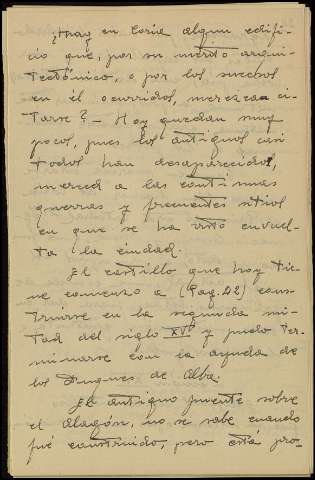 ¿Hay en Coria algun edifi-
cio que, por su mérito arqui-
tectónico, o por los sucesos
en él ocurridos, merezca ci-
tarse? - Hoy quedan muy
pocos, pues los antiguos casi
todos han desaparecidos,
merced a las continuas
guerras y frecuentes sitios
en que se ha visto envuel-
ta la ciudad.
El castillo que hoy tie-
ne comenzo a (Pag. 42) cons-
truirse en la segunda mi-
tad del siglo XV y pudo ter-
minarse con la ayuda de
los Duques de Alba.
El antiguo puente sobre
el Alagón, no se sabe cuando
fué construido, pero está pro-